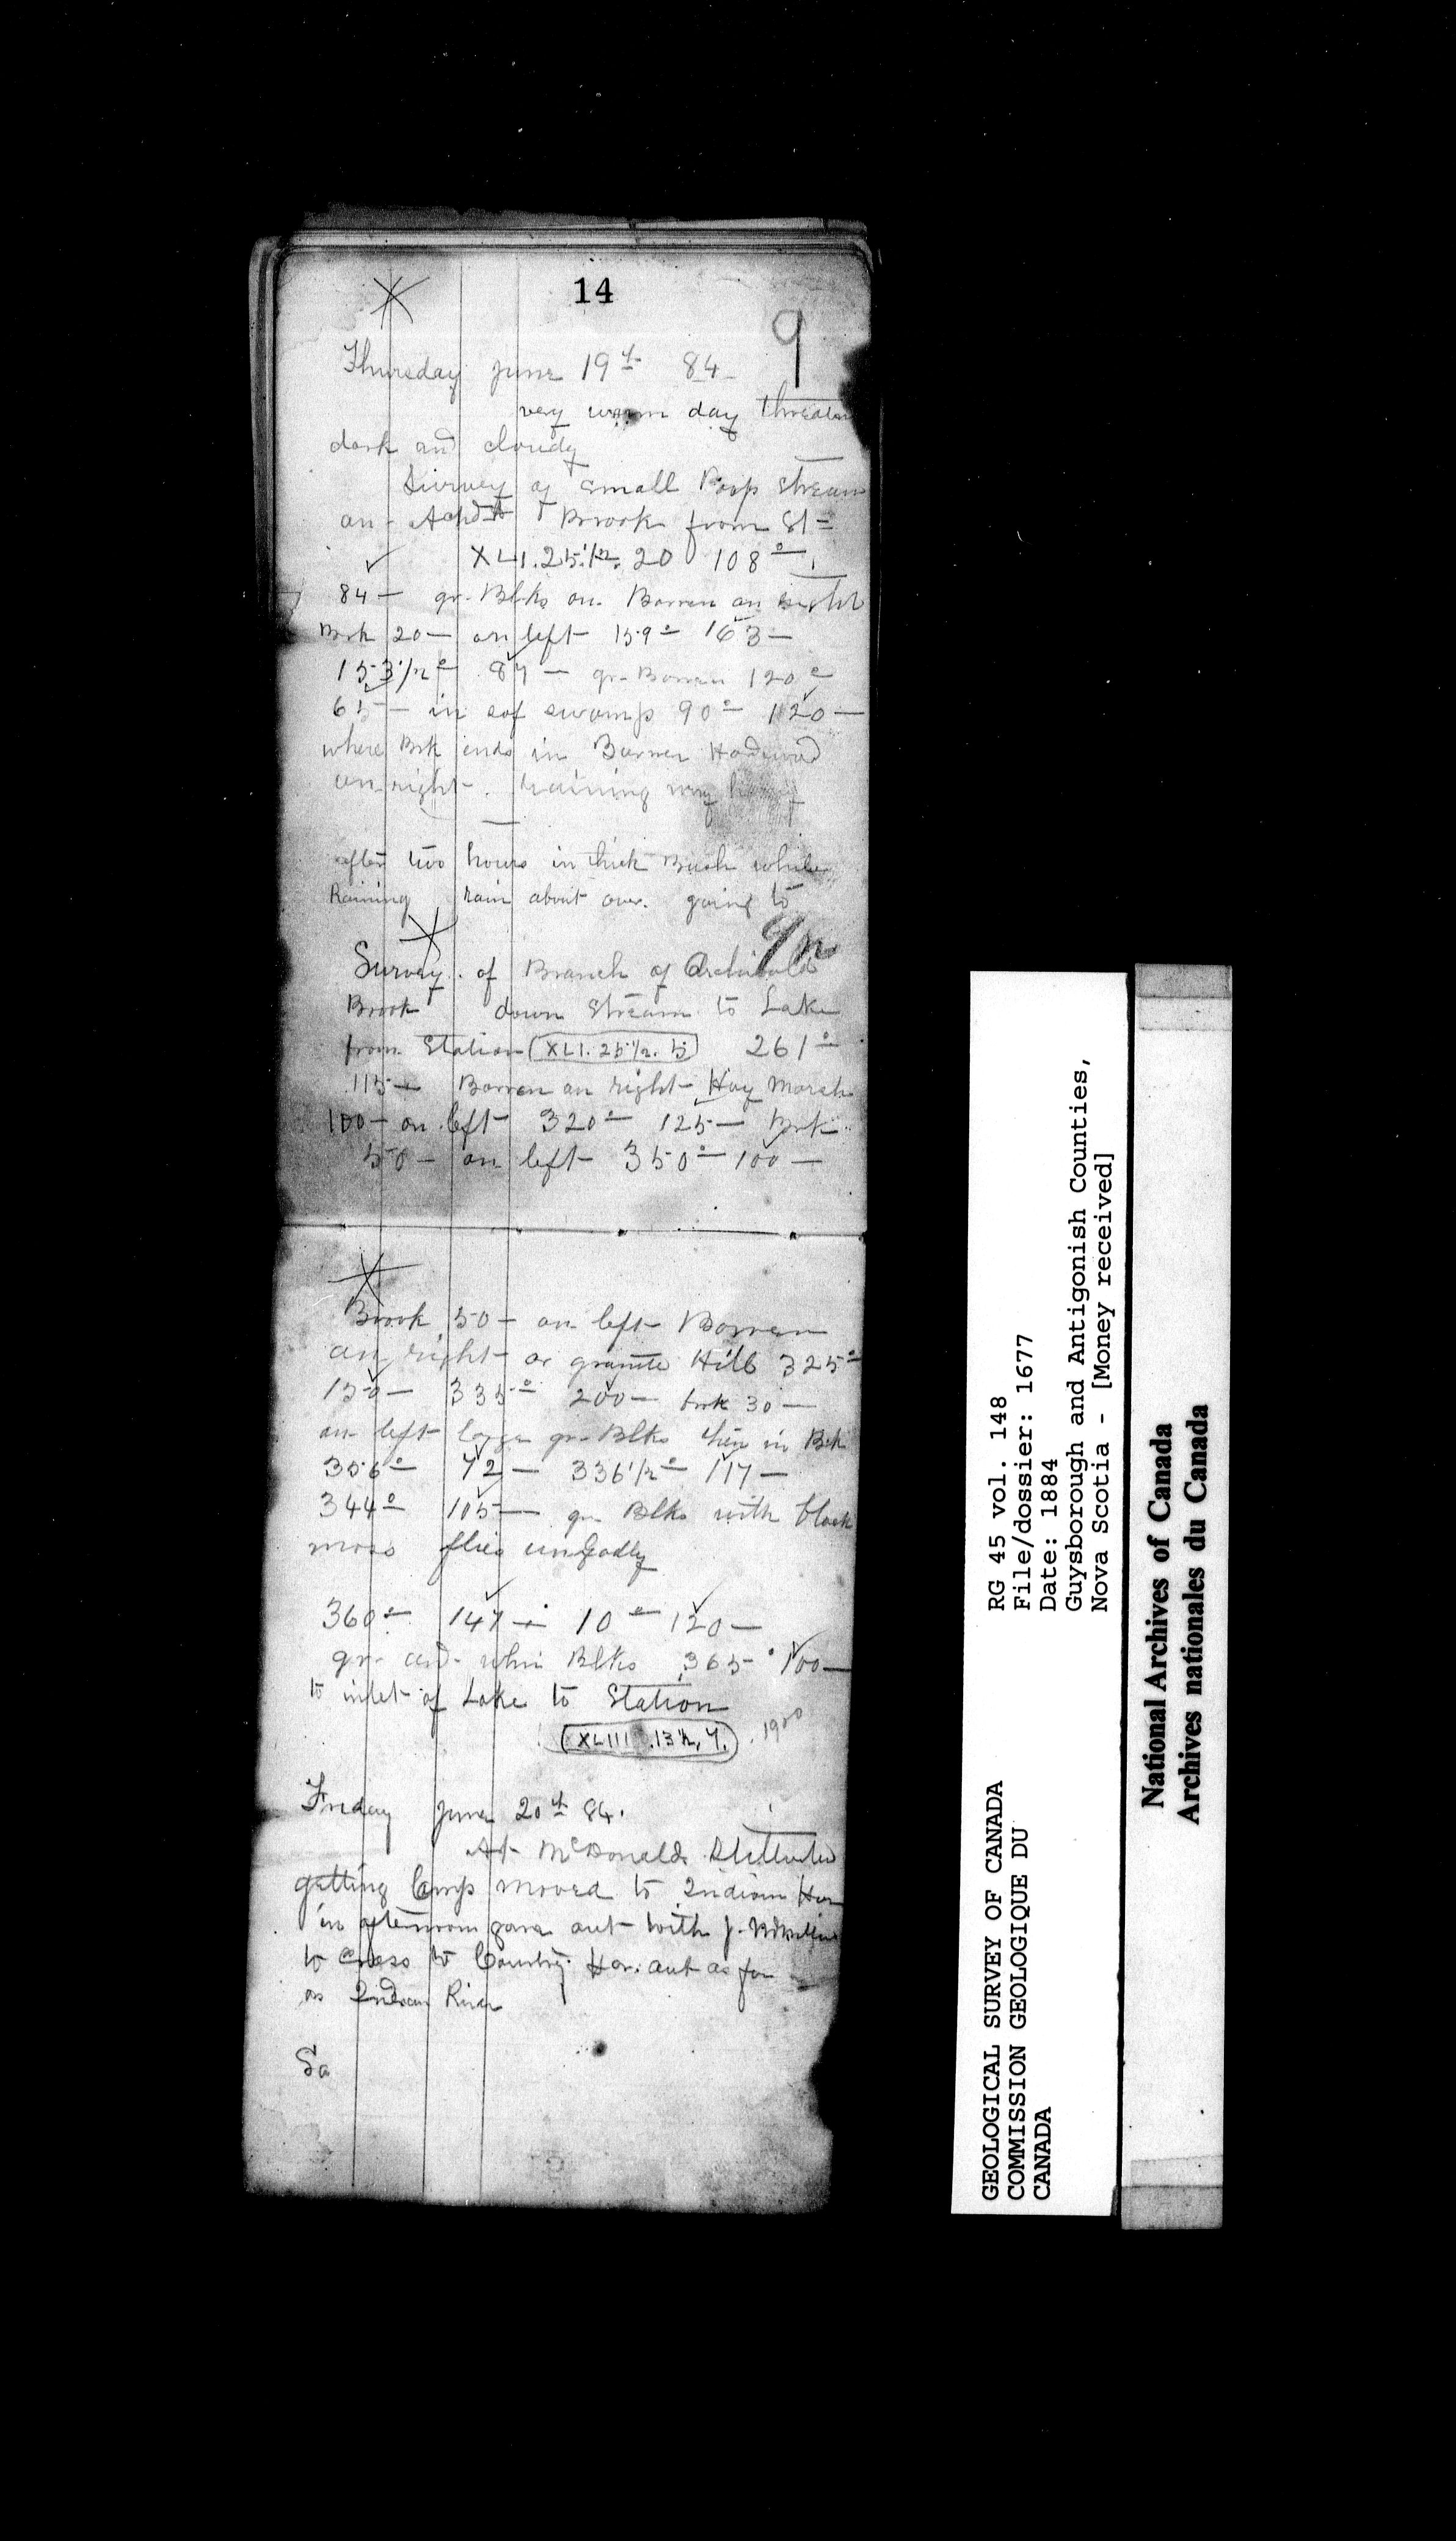 14
9
Thursday June 19th 84-
very warm day
dark and cloudy
Survey of small stream
on Brook from St=
XLI.25½.20 108°
84- gr-Blks on Barren on right
Brk 20- on left 159° 163-
153½° 87- gr-Barren 120°
65- in swamp 90° 120-
where Brk ends in Barren
on right. Raining very
after two hours in thick Bush while
Raining rain about over. going to
Survey of Branch of Archibald
Brook down Stream to Lake
from Station (XLI.25½.5) 261°
115- Barren on right- Hay Marsh
100- on left- 320° 125- Brk
50- on left- 350° 100-
Brook 50- on left- Barren
on right- or granite Hill 325°
150- 335° 200- brk 30-
on left large gr-Blks in Brk
356° 72- 336½° 117-
344° 105- gr Blks with black
moss flies ungodly
360° 147- 10° 120-
gr- and whin Blks 365- 100-
to inlet of Lake to Station
(XLIII.13½.7.)
Friday June 20th 84.
At McDonalds
getting Camp moved to Indian Har
in afternoon gone out with J.
to cross to Country Har. out as far
as Indian River
Sa
RG 45 vol. 148
File/dossier: 1677
Date: 1884
Guysborough and Antigonish Counties,
Nova Scotia - [Money received]
GEOLOGICAL SURVEY OF CANADA
COMMISSION GEOLOGIQUE DU
CANADA
National Archives of Canada
Archives nationales du Canada